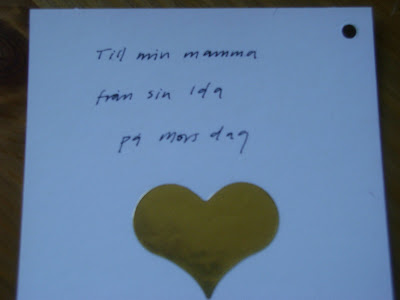 Till min mamma
från sin Ida
på Mors dag